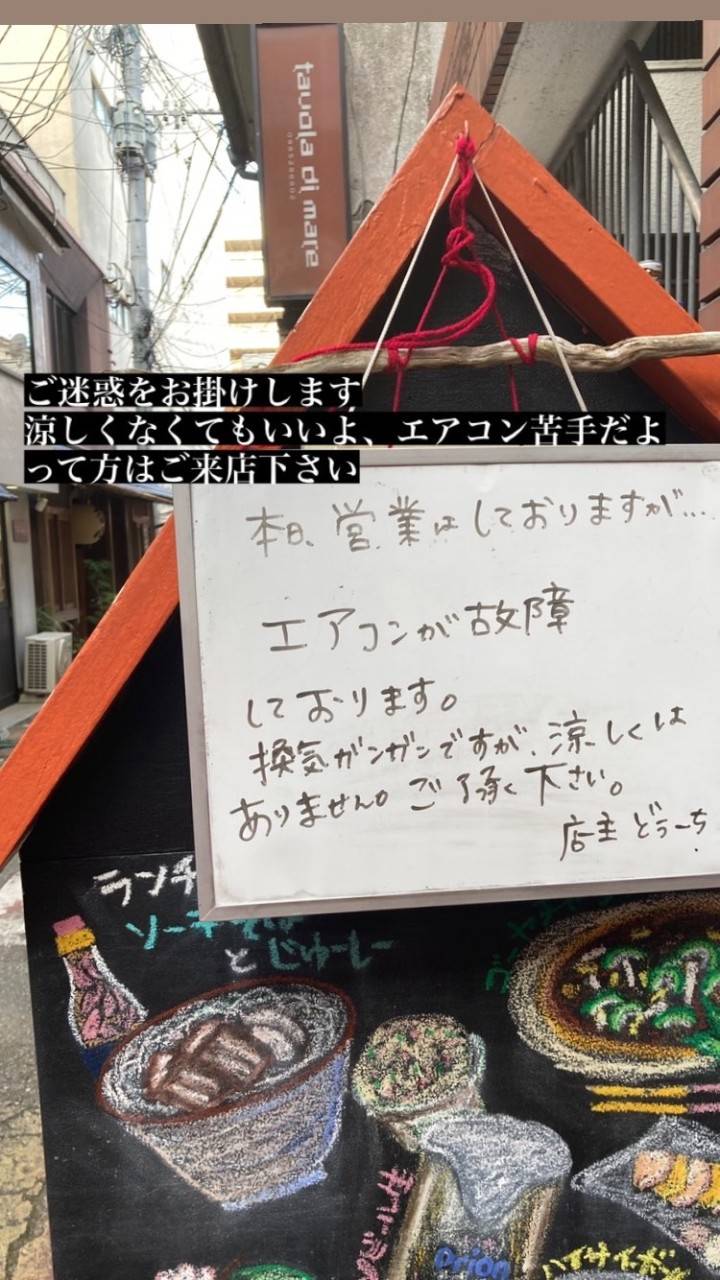 tavola di mare
ご迷惑をお掛けします
涼しくなくてもいいよ、エアコン苦手だよ
って方はご来店下さい
本日、営業はしておりますが...
エアコンが故障
しております。
換気ガンガンですが、涼しくは
ありません。ご了承下さい。
店主 どぅーち
ランチ
ソーキそば
とじゅーしー
Orion